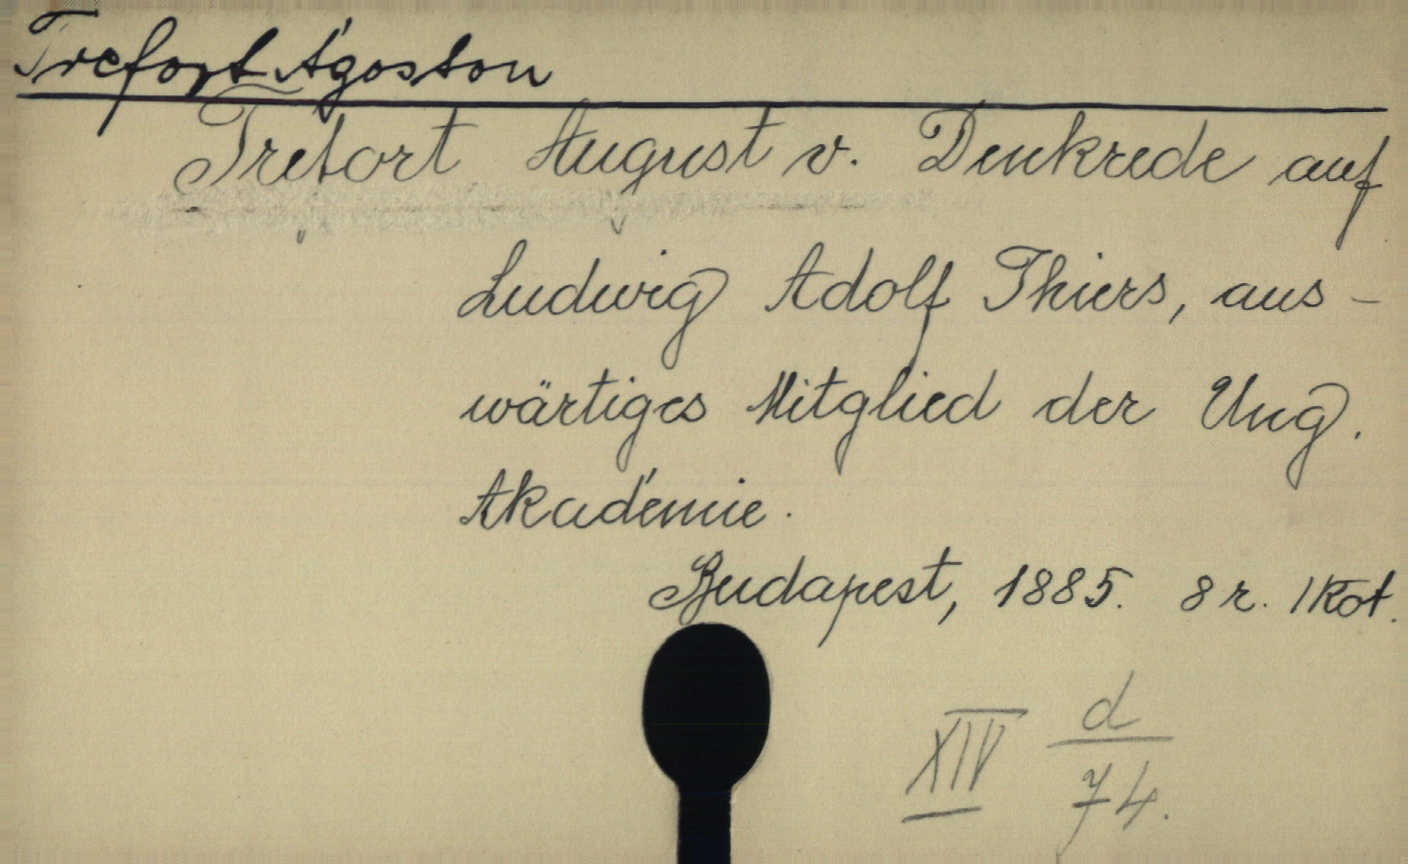 Trefort Ágoston
Trefort August v. Denkrede auf
Ludwig Adolf Thiers, aus-
wärtiges Mitglied der Ung.
Akadémie.
Budapest, 1885. 8 r. 1 Köt.
XIV d/74.